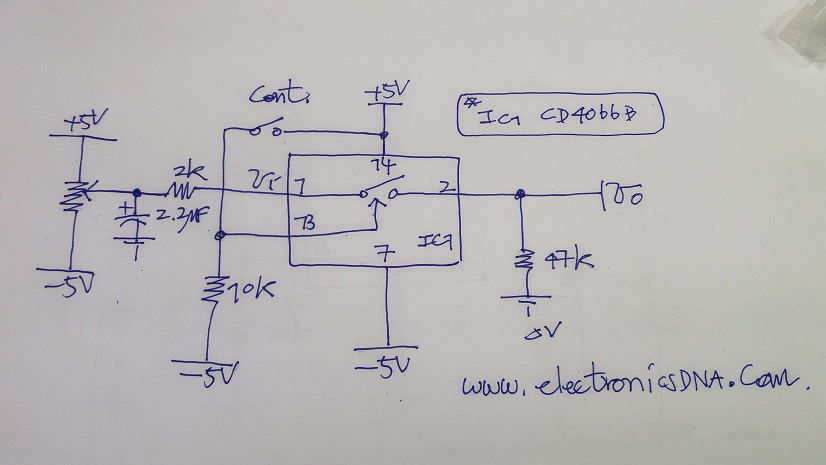 Cont.
+5V
* IC1 CD4066B
+5V
14
2k
Vi
1
2
Vo
+
2.2μF
13
IC1
7
47k
-5V
10k
0V
-5V
-5V
www.electronicsDNA.Com.